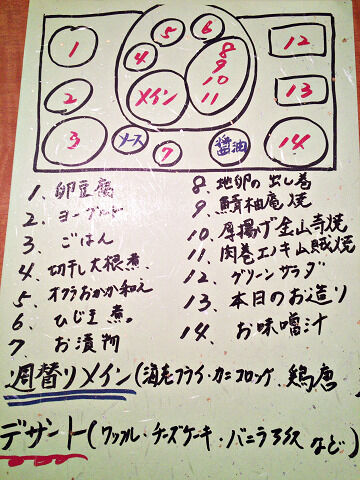 5 6
1 4 8 12
9
2 メイン 10 13
11
3 ソース 7 醤油 14
1 卵豆腐
2 ヨーグルト
3 ごはん
4 切干し大根煮
5 オクラおかか和え
6 ひじき煮。
7 お漬物
8 地卵の出し巻
9 鯖柚庵焼
10 厚揚げ金山寺焼
11 肉巻エノキ山賊焼
12 グリーンサラダ
13 本日のお造り
14 お味噌汁
週替りメイン(海老フライ・カニコロッケ 鶏唐
デザート(ワッフル・チーズケーキ・バニラアイス など)